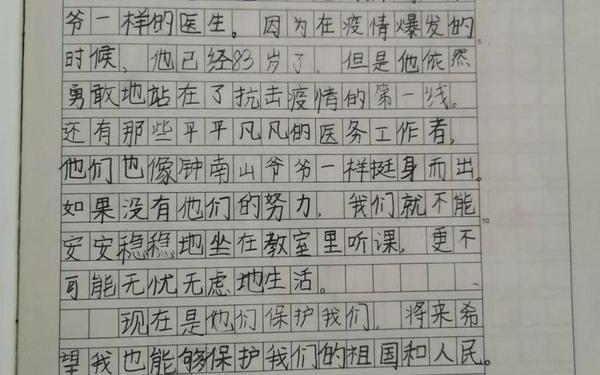 爷一样的医生。因为在疫情爆发的
时候，他已经83岁了，但是他依然
勇敢地站在了抗击疫情的第一线。
还有那些平平凡凡的医务工作者，
他们也像钟南山爷爷一样挺身而出。
如果没有他们的努力，我们就不能
安安稳稳地坐在教室里听课，更不
可能无忧无虑地生活。
现在是他们保护我们，将来希
望我也能够保护我们的祖国和人民。